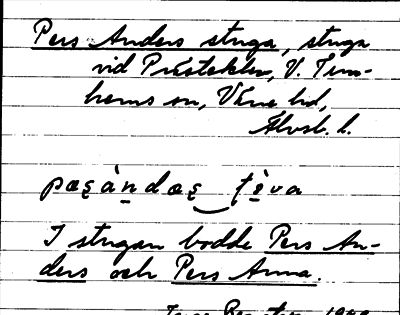 Pers Anders stuga, stuga
vid Prästeklev, V. Tun-
hems sn, Väne hd,
Älvsb. l.
pæʂàndæʂ
I stugan bodde Pers An-
ders och Pers Anna.